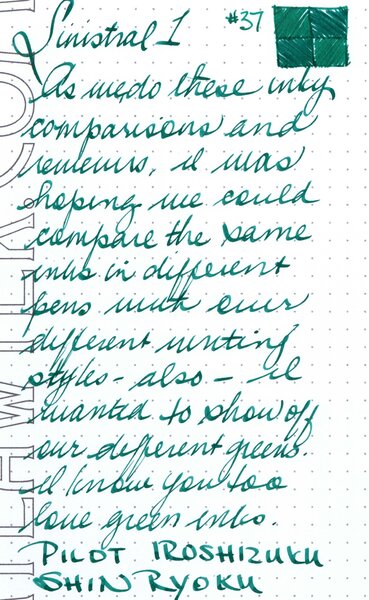 Sinistral 1 #37
As we do these inky
comparisons and
reviews, I was
hoping we could
compare the same
inks in different
pens with our
different writing
styles - also - I
wanted to show off
our different greens.
I know you too
love green inks.
PILOT IROSHIZUKU
SHIN RYOKU